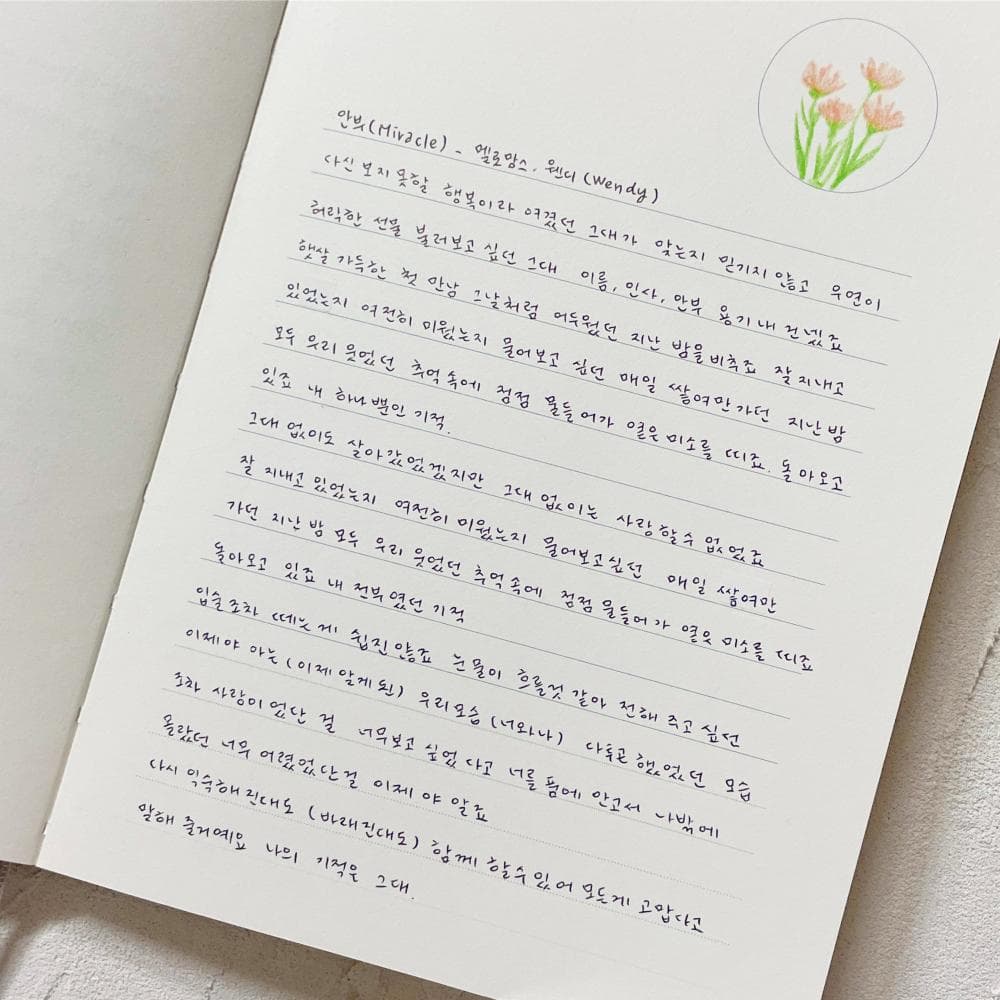 안부(Miracle) - 멜로망스. 웬디(Wendy)
다신 보지 못할 행복이라 여겼던 그대가 맞는지 믿기지 않고 우연이
허락한 선물 불러보고 싶던 그대 이름, 인사, 안부 용기 내 건넸죠
햇살 가득한 첫 만남 그날처럼 어두웠던 지난 밤을 비추죠 잘 지내고
있었는지 여전히 미웠는지 물어보고 싶던 매일 쌓여만 가던 지난 밤
모두 우리 웃었던 추억 속에 점점 물들어가 옅은 미소를 띠죠. 돌아오고
있죠 내 하나뿐인 기적.
그대 없이도 살아갔었겠지만 그대 없이는 사랑할 수 없었죠
잘 지내고 있었는지 여전히 미웠는지 물어보고 싶던 매일 쌓여만
가던 지난 밤 모두 우리 웃었던 추억 속에 점점 물들어 가 옅은 미소를 띠죠
돌아오고 있죠 내 전부였던 기적
입술조차 떼는게 쉽진 않죠 눈물이 흐를것 같아 전해 주고 싶던
이제야 아는 (이제 알게 된) 우리 모습 (너와 나) 다투곤 했었던 모습
조차 사랑이었단 걸 너무 보고 싶었다고 너를 품에 안고서 나밖에
몰랐던 너무 어렸었단걸 이제야 알죠
다시 익숙해진대도 (바래진대도) 함께 할 수 있어 모든게 고맙다고
말해 줄거예요 나의 기적은 그대.